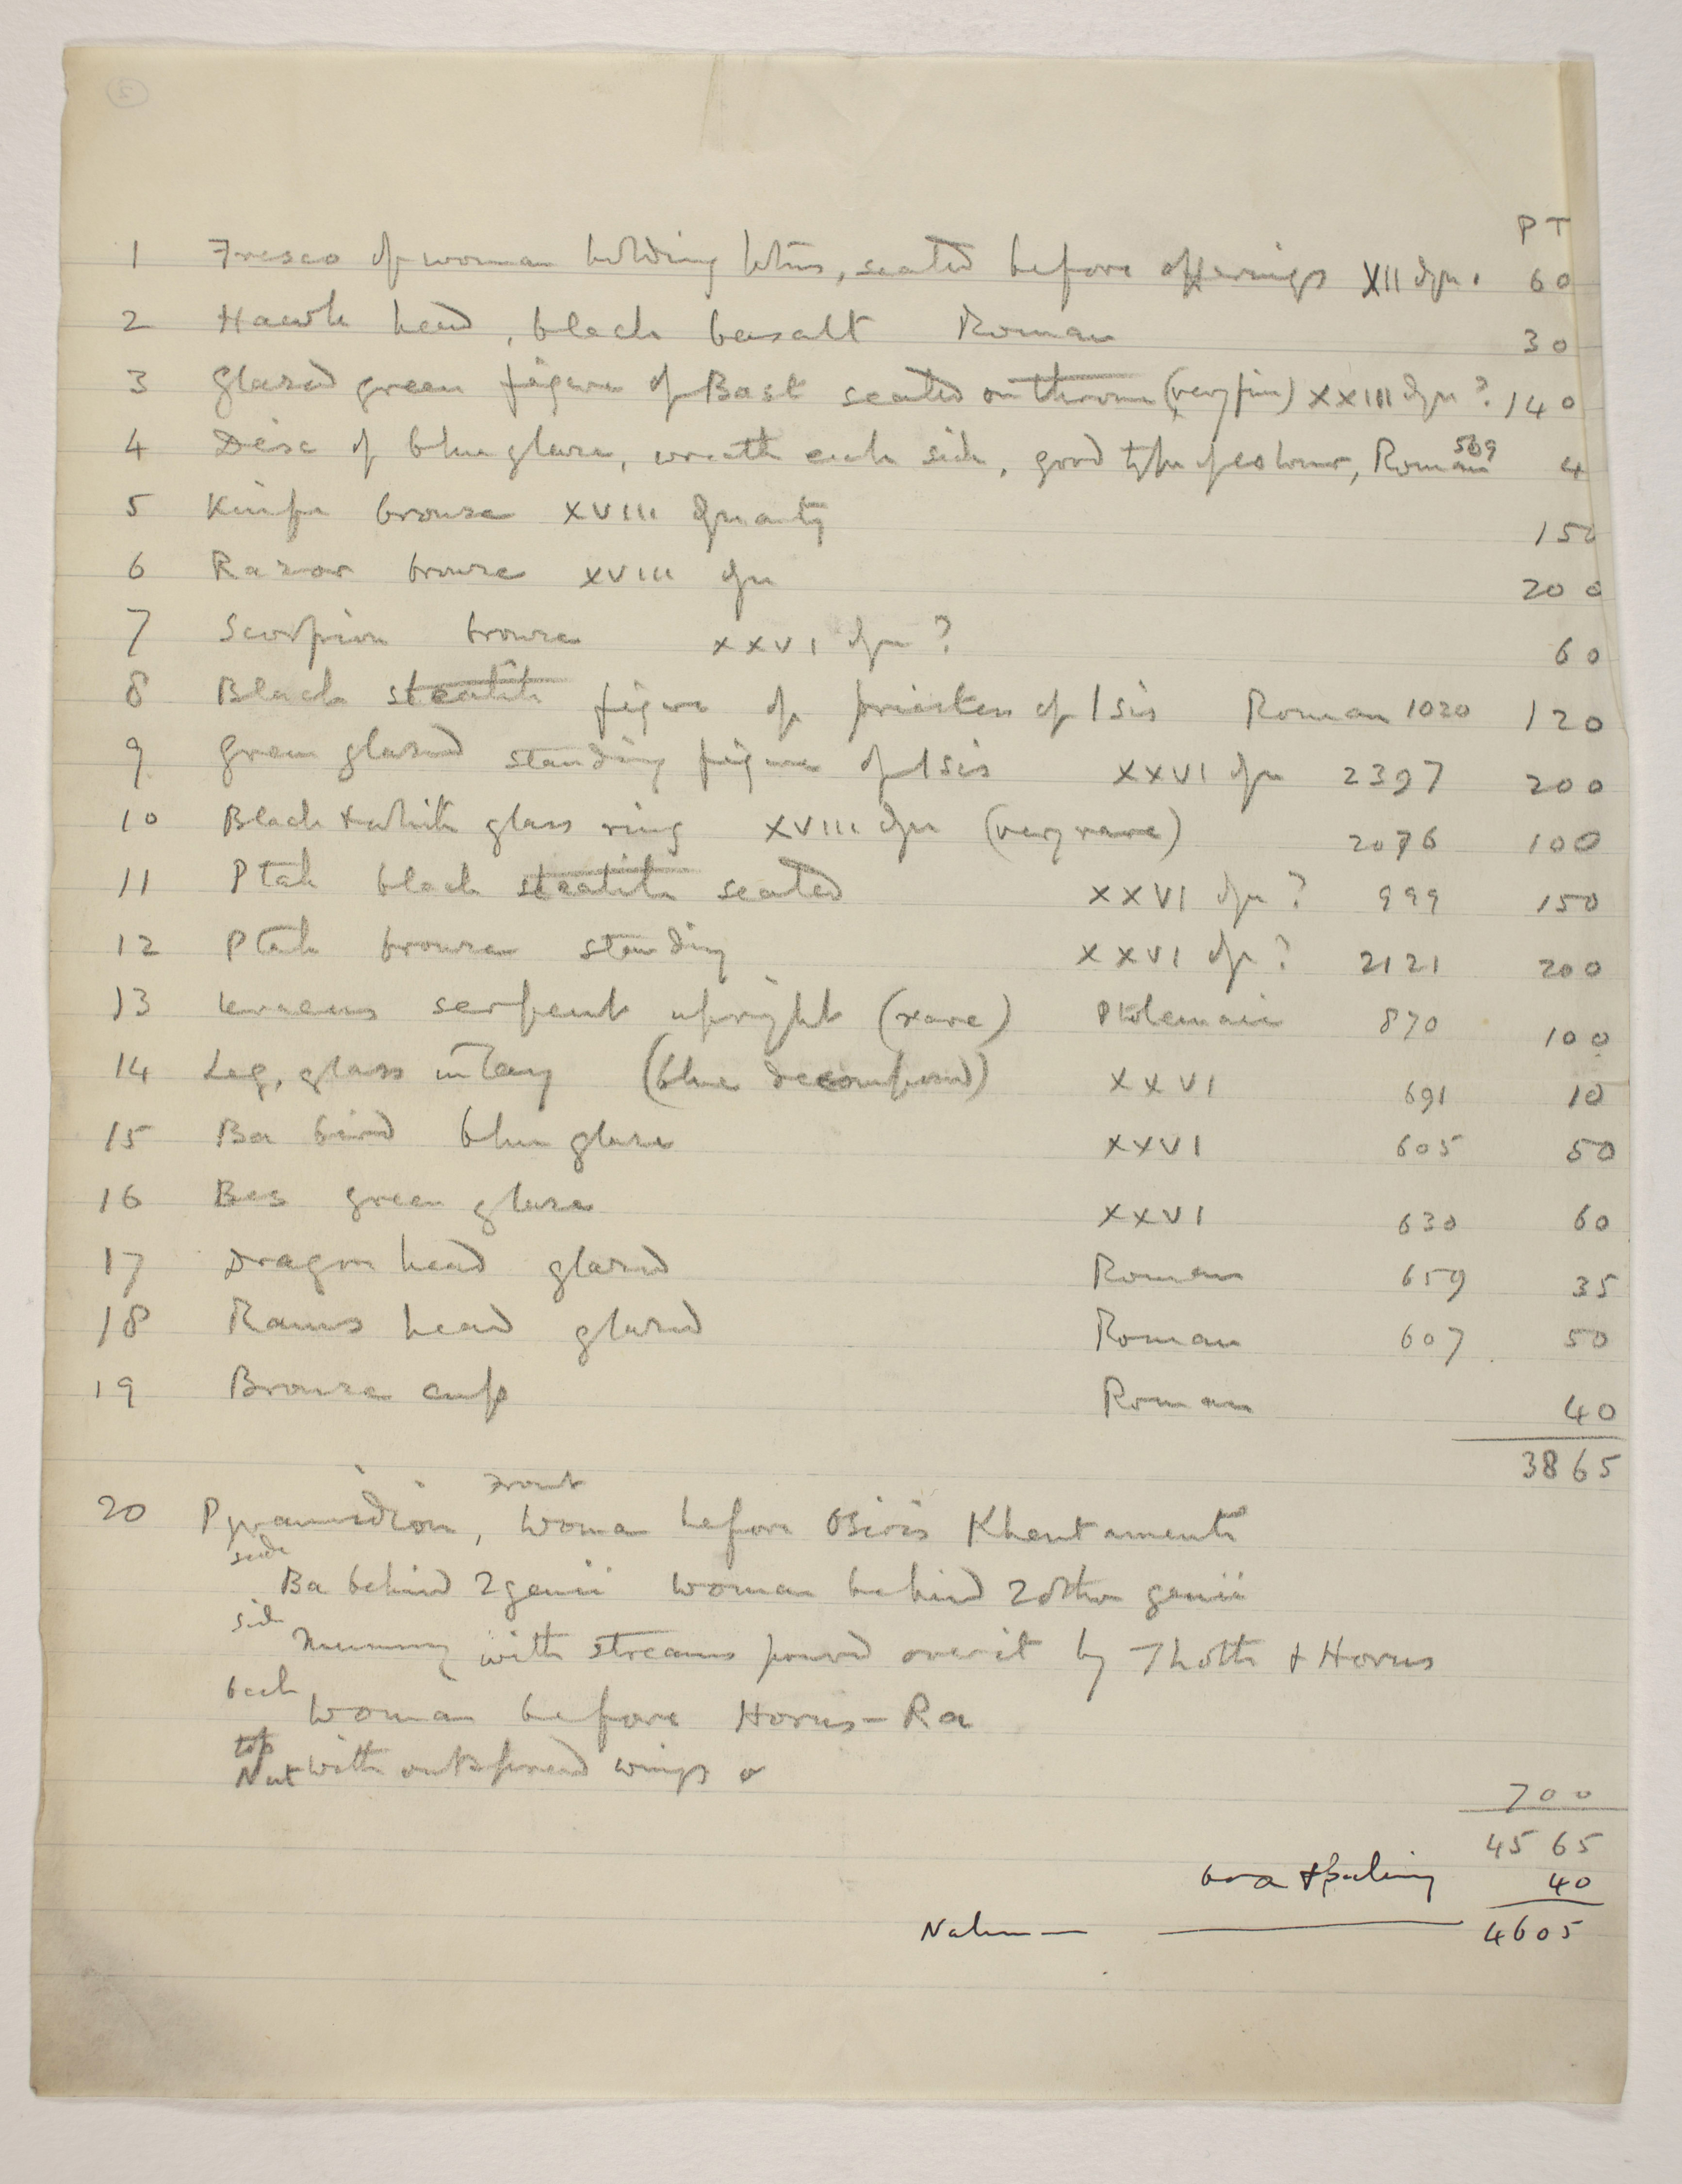 2
PT
1 Fresco of woman holding lotus, seated before offerings XII dyn. 60
2 Hawk head, black basalt Roman 30
3 Glazed green figure of Bast seated on throne (very fine) XXIII dyn? 140
4 Disc of blue glaze, wreath each side, good type of colour, Roman 569 4
5 Knife bronze XVIII dynasty 150
6 Razor bronze XVIII dyn 200
7 Scorpion bronze XXVI dyn? 60
8 Black steatite figure of priestess of Isis Roman 1020 120
9 Green glazed standing figure of Isis XXVI dyn 2397 200
10 Black & white glass ring XVIII dyn (very rare) 2076 100
11 Ptah black steatite seated XXVI dyn? 999 150
12 Ptah bronze standing XXVI dyn? 2121 200
13 Uraeus serpent upright (rare) Ptolemaic 870 100
14 Leg, glass inlay (blue decomposed) XXVI 691 10
15 Ba bird blue glaze XXVI 605 50
16 Bes green glaze XXVI 630 60
17 Dragon head glazed Roman 659 35
18 Rams head glazed Roman 607 50
19 Bronze cup Roman 40
3865
Front
20 Pyramidion, Woman before Osiris Khentamenti
side Ba behind 2 genii woman behind 2 other genii
side Mummy with streams poured over it by Thoth & Horus
back Woman before Horus-Ra
top
Nut with outspread wings
700
4565
box & packing 40
Nahman 4605